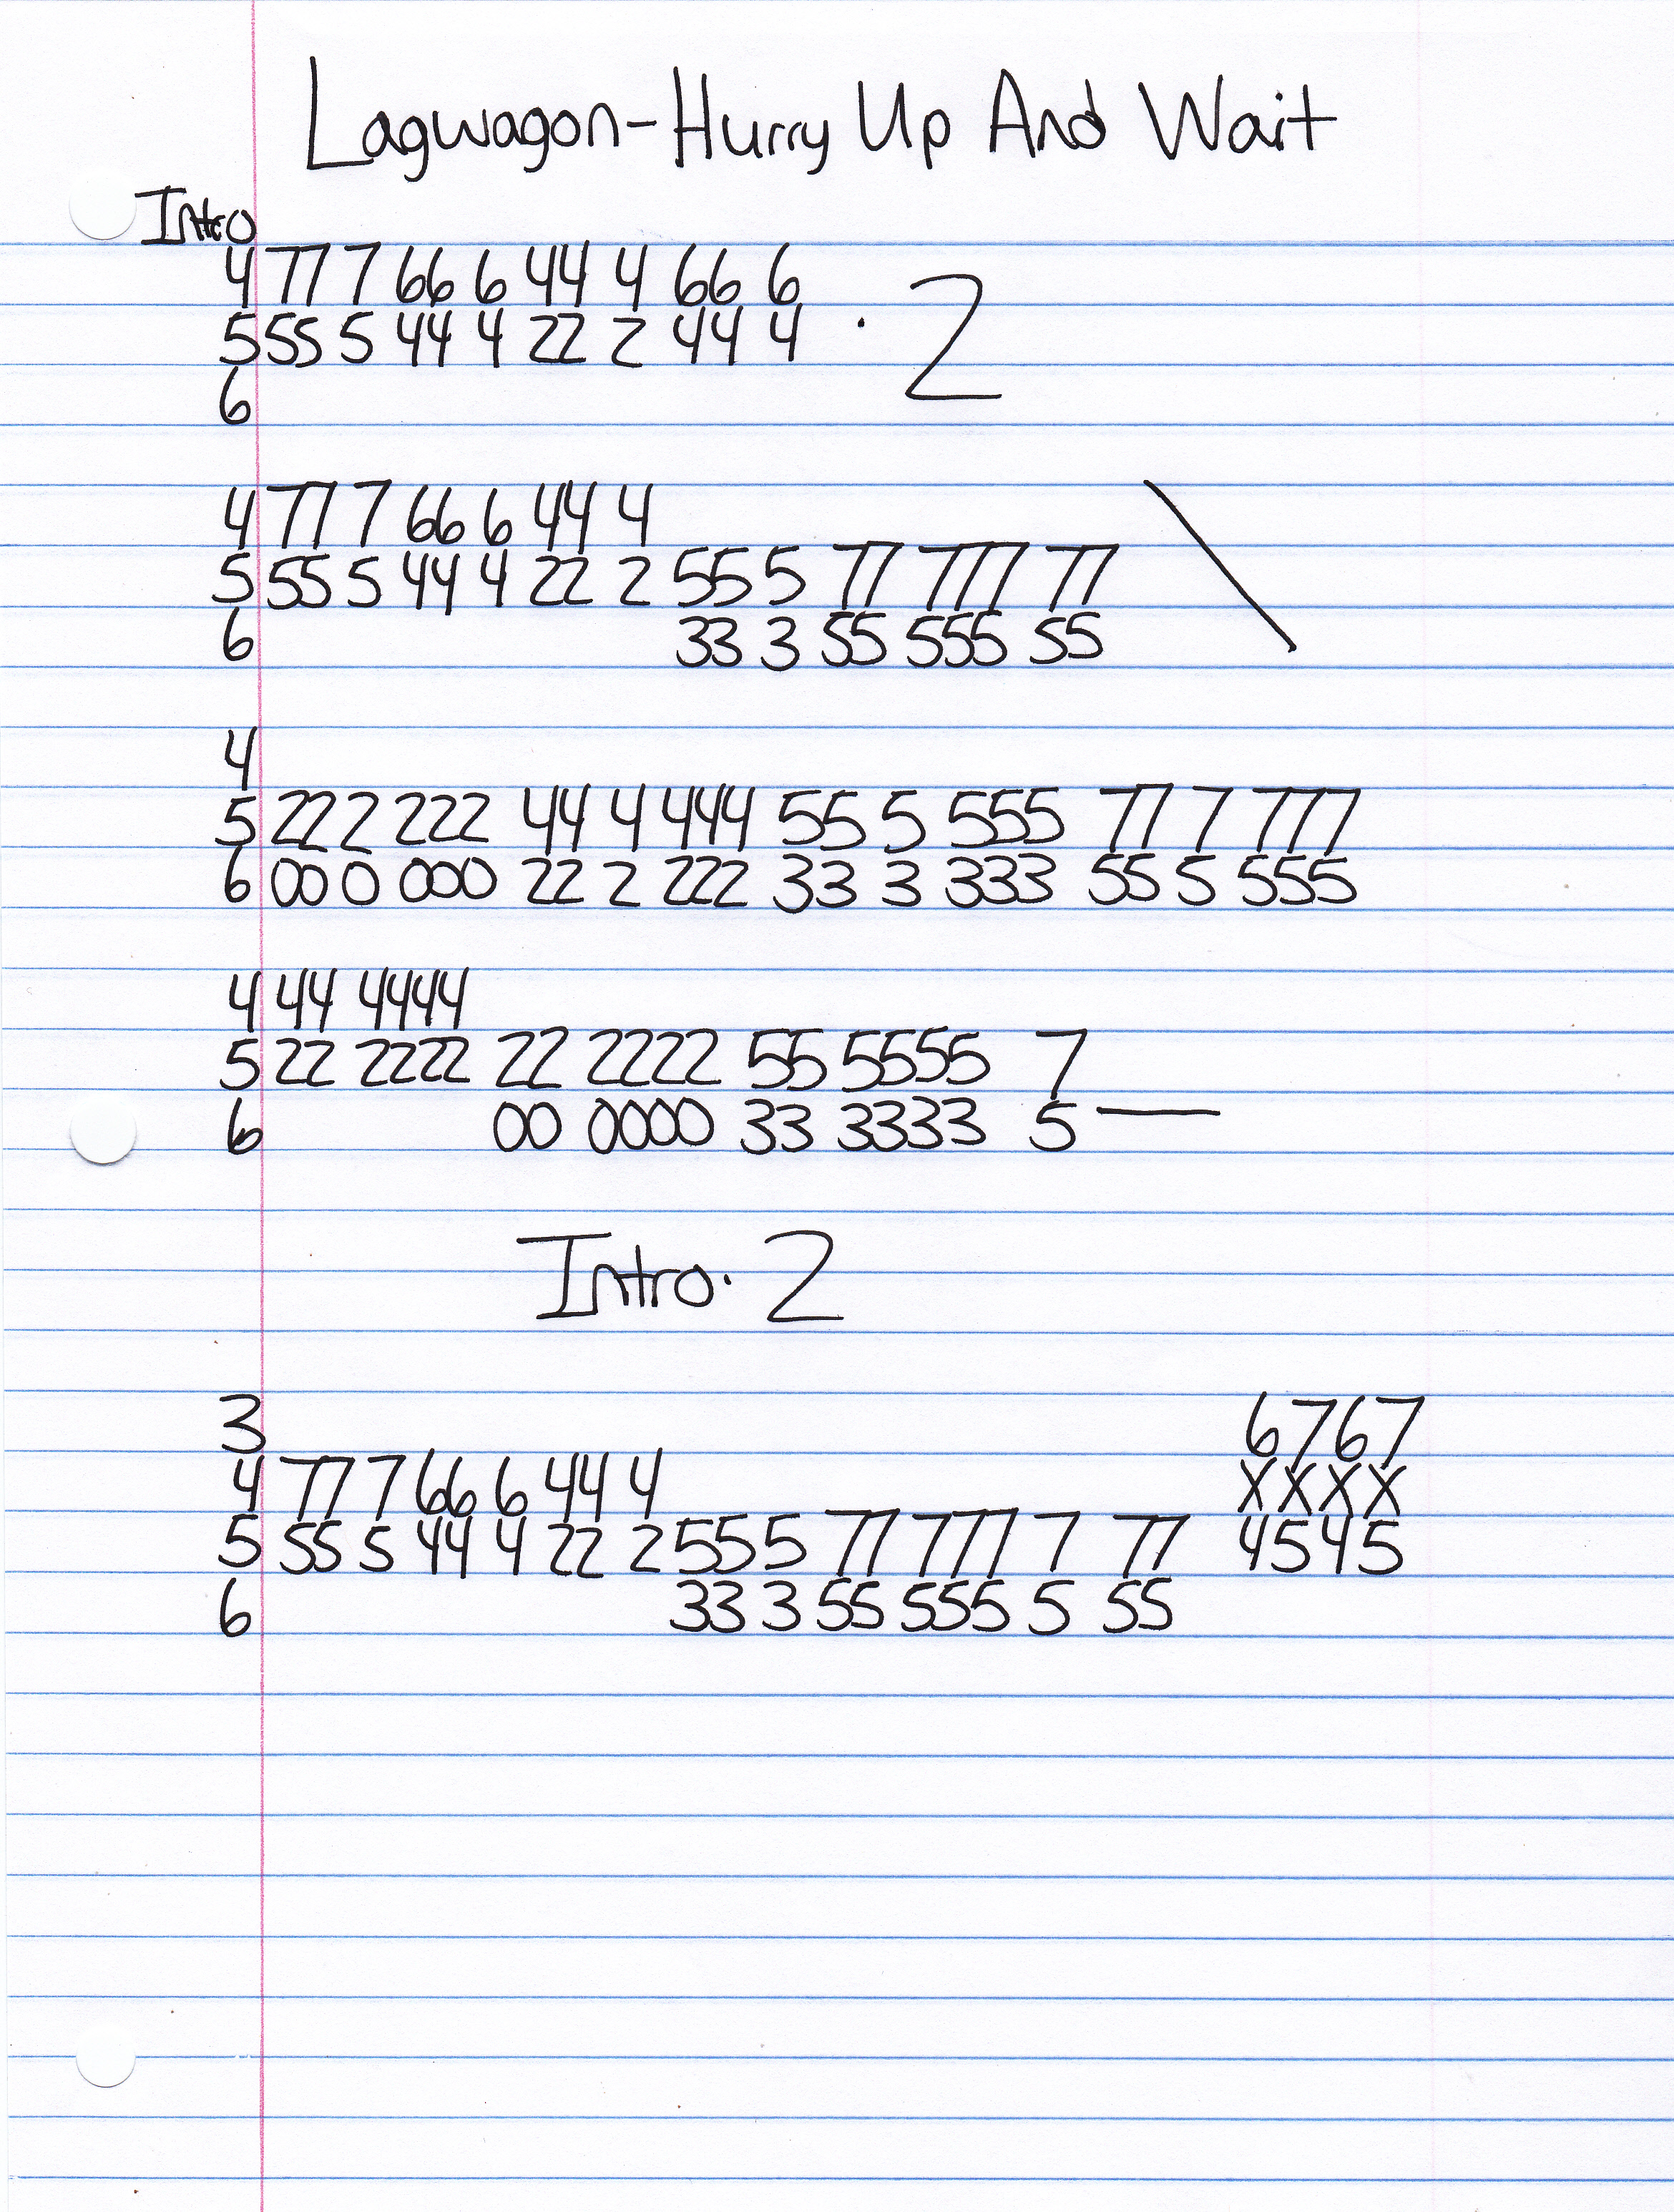 Lagwagon-Hurry Up And Wait
Intro
4 77 7 66 6 44 4 66 6
5 55 5 44 4 22 2 44 4 · 2
6
4 77 7 66 6 44 4
5 55 5 44 4 22 2 55 5 77 777 77 \
6 33 3 55 555 55
4
5 22 2 222 44 4 444 55 5 555 77 7 777
6 00 0 000 22 2 222 33 3 333 55 5 555
4 44 4444
5 22 2222 22 2222 55 5555 7
6 00 0000 33 3333 5 —
Intro · 2
3 6767
4 77 7 66 6 44 4 XXXX
5 55 5 44 4 22 2 55 5 77 777 7 77 4545
6 33 3 55 555 5 55